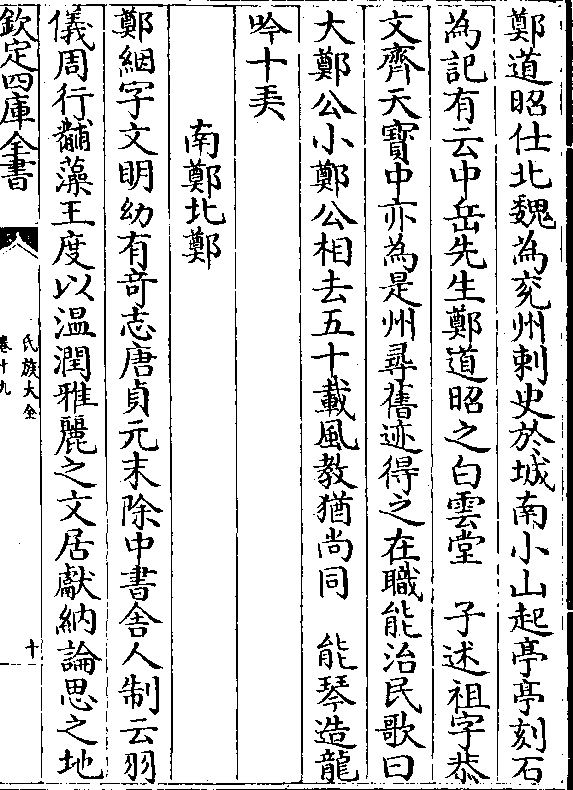 鄭道昭仕北魏為兖州刺史於城南小山起亭亭刻石
為記有云中岳先生鄭道昭之白雲堂　子述祖字恭
文齊天寶中亦為是州尋舊迹得之在職能治民歌曰
大鄭公小鄭公相去五十載風教猶尚同　能琴造龍
吟十美
南鄭北鄭
鄭絪字文明幼有竒志唐貞元末除中書舍人制云羽
儀周行黼藻王度以温潤雅麗之文居獻納論思之地
欽定四庫全書
氏族大全
卷十九
十